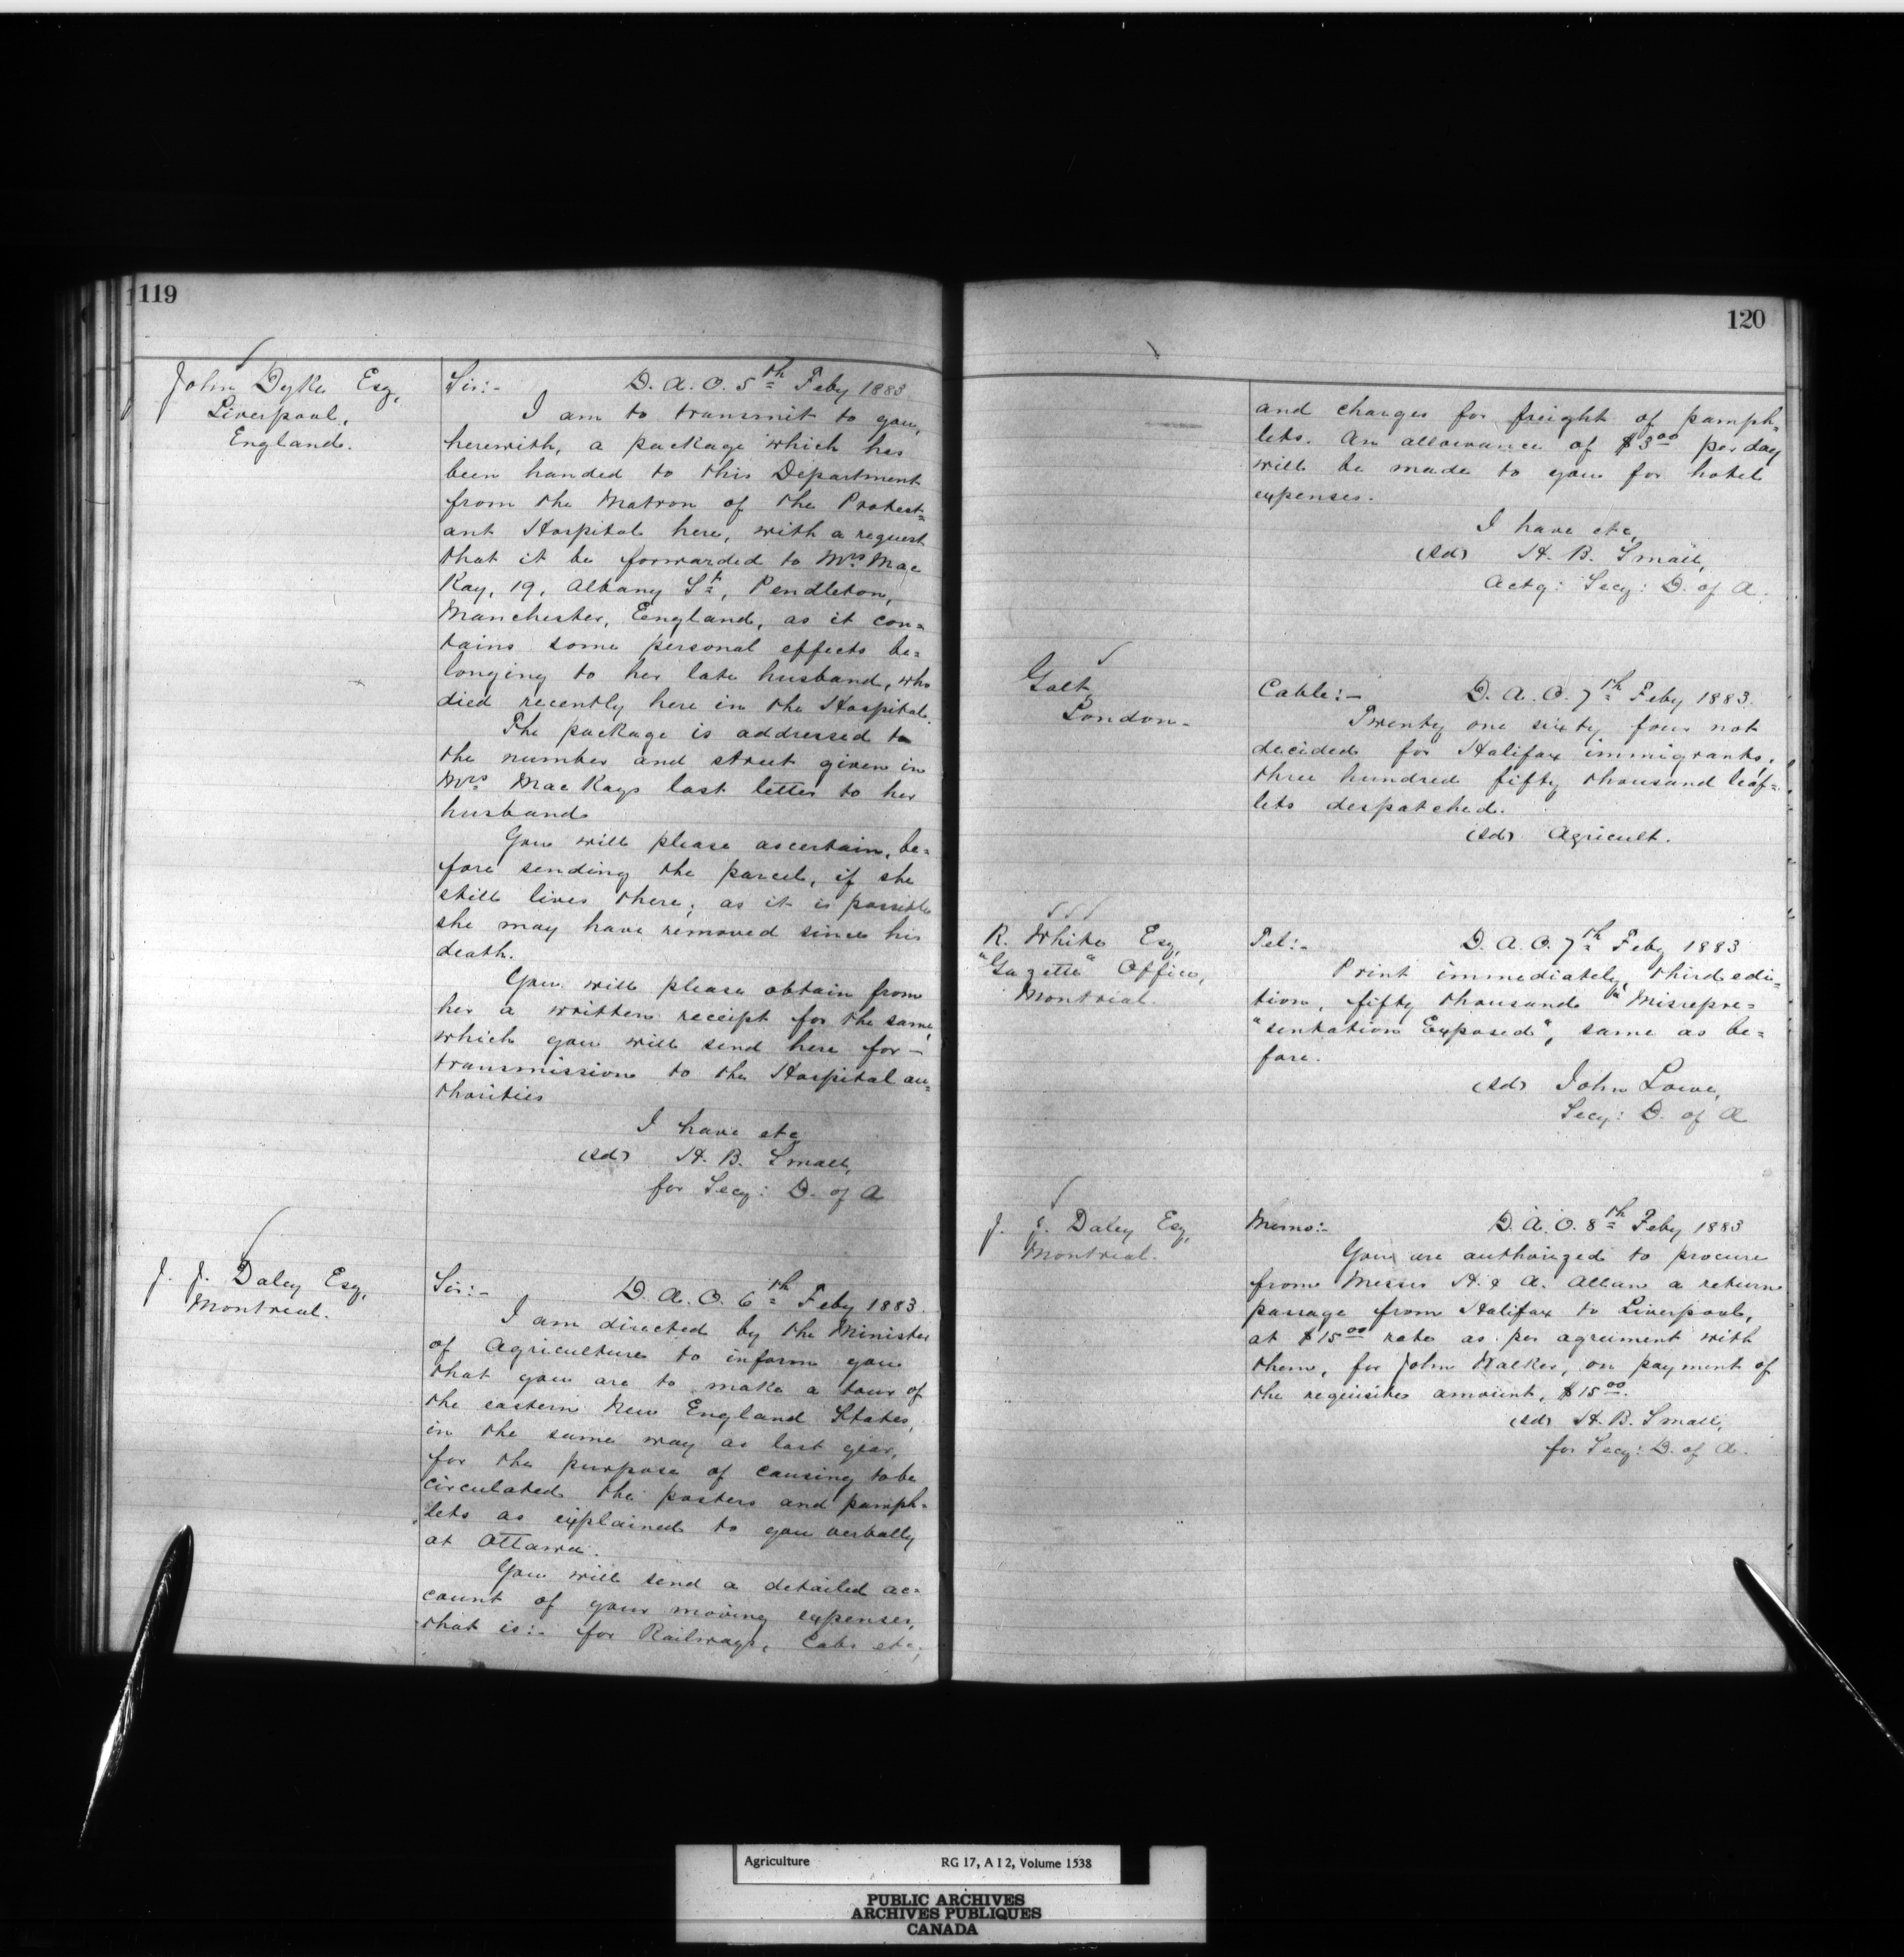 119
John Dyke Esq,
Liverpool,
England.
Sir:- D. A. O. 5th Feby 1883
I am to transmit to you,
herewith, a package which has
been handed to this Department
from the Matron of the Protest=
ant Hospital here, with a request
that it be forwarded to Mrs Mac
Kay, 19, Albany St, Pendleton,
Manchester, England, as it con=
tains some personal effects be=
longing to her late husband, who
died recently here in the Hospital.
The package is addressed to
the number and street given in
Mrs MacKays last letter to her
husband
You will please ascertain, be=
fore sending the parcel, if she
still lives there; as it is possible
she may have removed since his
death.
You will please obtain from
her a written receipt for the same,
which you will send here for-
transmission to the Hospital au=
thorities
I have etc
(sd) H. B. Small,
for Secy: D. of A
J. J. Daley Esq,
Montreal.
Sir:- D. A. O. 6th Feby 1883.
I am directed by the Minister
of Agriculture to inform you
that you are to make a tour of
the eastern New England States,
in the same way as last year,
for the purpose of causing to be
circulated the posters and pamph=
lets as explained to you verbally
at Ottawa.
You will send a detailed ac=
count of your moving expenses,
that is:- for Railways, Cabs etc,
120
and charges for freight of pamph=
lets. An allowance of $3.00 per day
will be made to you for hotel
expenses.
I have etc,
(sd) H. B. Small,
Actg: Secy: D. of A.
Galt,
London-
Cable:- D. A. O. 7th Feby 1883.
Twenty one sixty four not
decided for Halifax immigrants,
three hundred fifty thousand leaf=
lets despatched.
(sd) Agricult.
R. White Esq,
"Gazette" Office,
Montreal.
Tel:- D. A. O. 7th Feby 1883
Print immediately, third edi=
tion, fifty thousand "Misrepre=
"sentation Exposed", same as be=
fore.
(sd) John Lowe,
Secy: D. of A
J. J. Daley Esq,
Montreal.
Memo:- D. A. O. 8th Feby 1883
You are authorized to procure
from Messrs H. & A. Allan a return
passage from Halifax to Liverpool,
at $15.00 rate as per agreement with
them, for John Walker, on payment of
the requisite amount, $15.00.
(sd) H. B. Small,
for Secy: D. of A.
Agriculture RG 17, A I 2, Volume 1538
PUBLIC ARCHIVES
ARCHIVES PUBLIQUES
CANADA